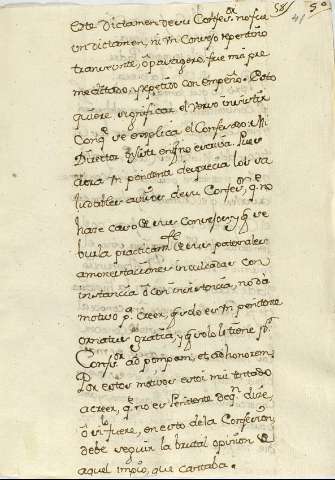 58
5º
41
Este Dictamen de su Confesor no fue
un dictamen, ni un Consejo repentino
transeunte, ò pasagero, fue mui pre
meditado, y repetido con empeño. Esto
quiere significar el Vervo
Con q se explica el Confesor: Mi
Director
un penitente desprecia los sa
ludables avisos de su Confesor, q no
hase caso de sus Consejos, y q se
burla practicamte de sus paternales
amonestaciones inculcadas con
instancia ò con insistencia, no dà
motivo pa creer, q solo es un penitente
gratia, y q solo le tiene pr
Confesor ad pompam, et ad honorem.
Por estos motivos estoi mui tentado
a creer, q no es Penitente de qn dise,
ò si lo fuere, en esto de la Confesion
debe seguir la brutal opinion de
aquel impio, que cantaba.